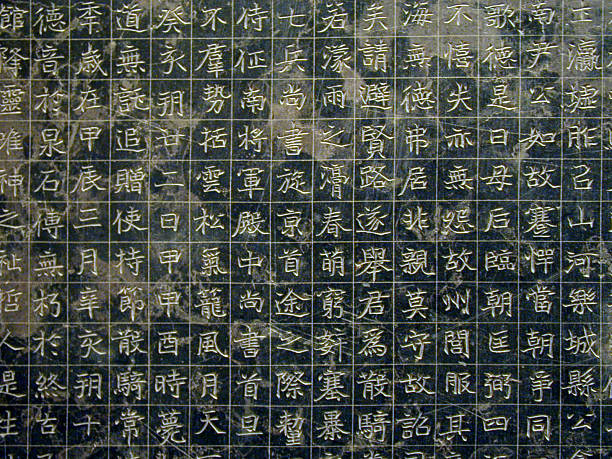 王瀛墟胙召山河樂城縣公
南尹公如故謇愕當朝爭同
歌德是日毋后臨朝匡弼四
不憘尖亦無怨故州閭服其
海無德弗居非親莫守故詔
矣請避賢路遂舉君為散騎
若濛雨之潤春萌窮薪塞暴
七兵尚書旋京首途之際蹔
侍征南將軍殿中尚書首旦
不羣勢括雲松氣籠風月天
癸亥朔廿二日甲申酉時薨
道無訛追贈使持節散騎常
年歲在甲辰三月辛亥朔十
德音於泉石傳無朽於終古
館降靈唯神之祉哲人是生